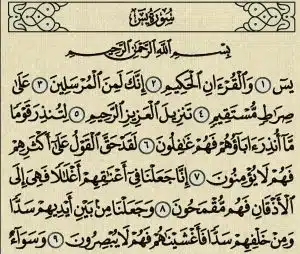 سُورَةُ يسٓ
بِسْمِ اللَّهِ الرَّحْمَٰنِ الرَّحِيمِ
يسٓ ١ وَالْقُرْءَانِ الْحَكِيمِ ٢ إِنَّكَ لَمِنَ الْمُرْسَلِينَ ٣ عَلَىٰ
صِرَاطٍ مُّسْتَقِيمٍ ٤ تَنزِيلَ الْعَزِيزِ الرَّحِيمِ ٥ لِتُنذِرَ قَوْمًا
مَّا أُنذِرَ ءَابَاؤُهُمْ فَهُمْ غَافِلُونَ ٦ لَقَدْ حَقَّ الْقَوْلُ عَلَىٰ أَكْثَرِهِمْ
فَهُمْ لَا يُؤْمِنُونَ ٧ إِنَّا جَعَلْنَا فِي أَعْنَاقِهِمْ أَغْلَالًا فَهِيَ إِلَى
الْأَذْقَانِ فَهُم مُّقْمَحُونَ ٨ وَجَعَلْنَا مِن بَيْنِ أَيْدِيهِمْ سَدًّا
وَمِنْ خَلْفِهِمْ سَدًّا فَأَغْشَيْنَاهُمْ فَهُمْ لَا يُبْصِرُونَ ٩ وَسَوَاءٌ